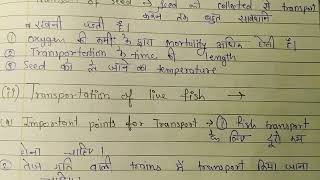 Transport of Seed → Seed को collected से transport
करने तक बहुत सावधानी
रखनी पड़ती है।
① Oxygen की कमी के द्वारा mortality अधिक होती है।
② Transportation के time की length
③ Seed को ले जाने का temperature
(ii) Transportation of live fish →
(a) Important points for Transport → ① Fish transport
के लिए दूरी कम
होना चाहिए।
② तेज गति वाली trains में transport किया जाना
चाहिए।